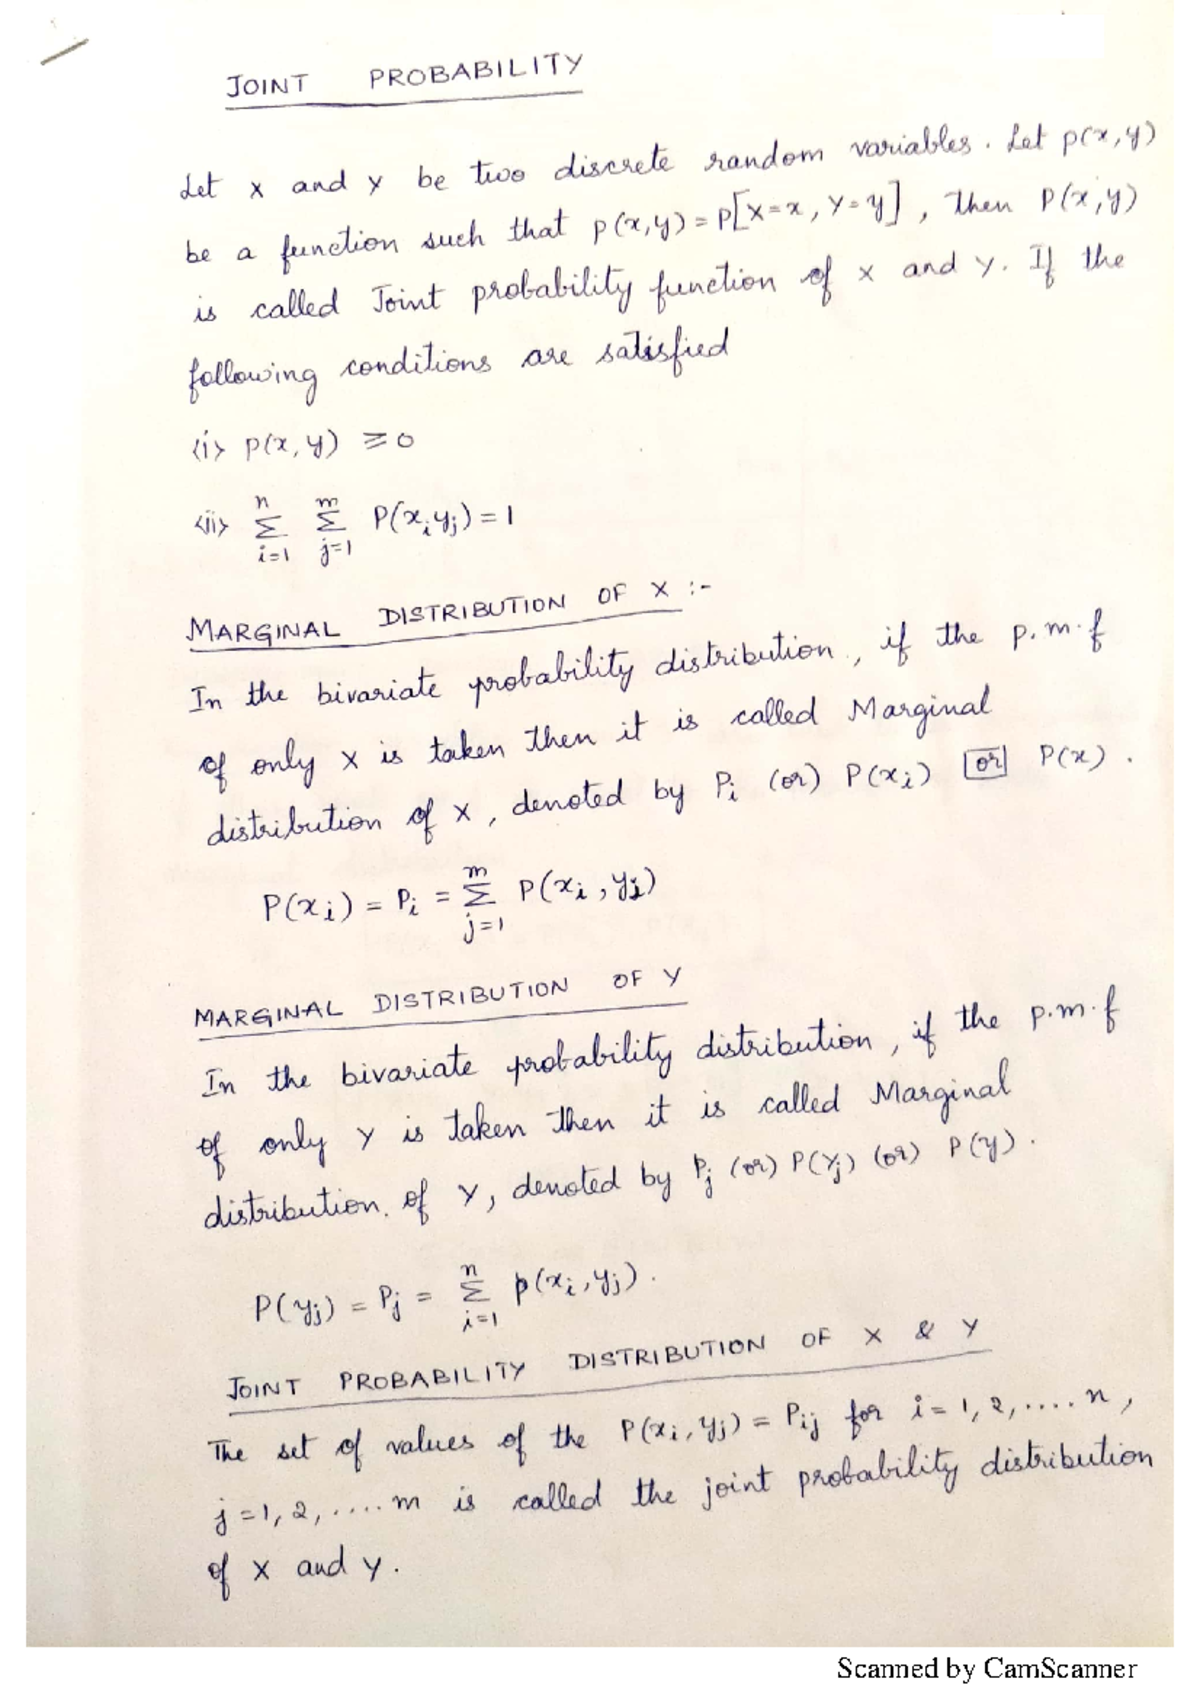 JOINT PROBABILITY
Let X and Y be two discrete random variables. Let p(x,y)
be a function such that p(x,y) = P[X=x, Y=y], then P(x,y)
is called Joint probability function of X and Y. If the
following conditions are satisfied
<i> p(x,y) ≥ 0
<ii> n∑i=1 m∑j=1 P(xᵢyⱼ) = 1
MARGINAL DISTRIBUTION OF X :-
In the bivariate probability distribution, if the p.m.f
of only X is taken then it is called Marginal
distribution of X, denoted by Pᵢ (or) P(xᵢ) or P(x).
P(xᵢ) = Pᵢ = m∑j=1 P(xᵢ, yⱼ)
MARGINAL DISTRIBUTION OF Y
In the bivariate probability distribution, if the p.m.f
of only Y is taken then it is called Marginal
distribution. of Y, denoted by Pⱼ (or) P(Yⱼ) (or) P(y).
P(yⱼ) = Pⱼ = n∑i=1 p(xᵢ, yⱼ).
JOINT PROBABILITY DISTRIBUTION OF X & Y
The set of values of the P(xᵢ, yⱼ) = Pᵢⱼ for i = 1, 2, .... n,
j = 1, 2, .... m is called the joint probability distribution
of X and Y.
Scanned by CamScanner